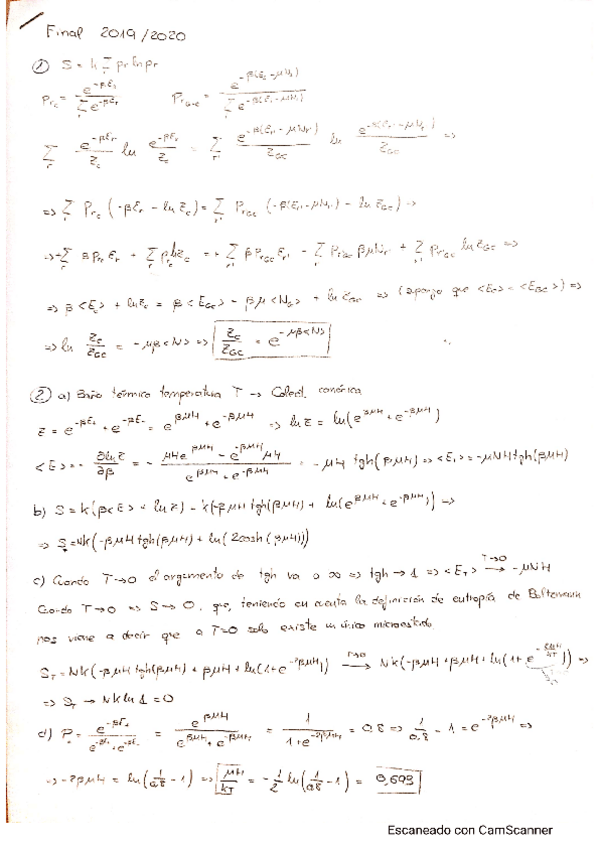 Final 2019/2020
① S = k Σ pr ln pr
Pr_c = e^{-βEr} / Σ e^{-βEr}    Pr_GC = e^{-β(Er-μNr)} / Σ e^{-β(Er-μNr)}
Σ_r e^{-βEr}/Z_c ln e^{-βEr}/Z_c = Σ_r e^{-β(Er-μNr)}/Z_GC ln e^{-β(Er-μNr)}/Z_GC =>
=> Σ_r Pr_c (-βEr - ln Z_c) = Σ_r Pr_GC (-β(Er-μNr) - ln Z_GC) =>
=> + Σ_r β Pr Er + Σ_r Pr ln Z_c = + Σ_r β Pr_GC Er - Σ_r Pr_GC βμNr + Σ_r Pr_GC ln Z_GC =>
=> β<E_c> + ln Z_c = β<E_GC> - βμ<N_> + ln Z_GC => (supongo que <E_c> = <E_GC>) =>
=> ln Z_c/Z_GC = -μβ<N> => Z_c/Z_GC = e^{-μβ<N>}
② a) Baño térmico temperatura T → Colect. canónica
Z = e^{-βE+} + e^{-βE-} = e^{βμH} + e^{-βμH} => ln Z = ln(e^{βμH} + e^{-βμH})
<E> = - ∂lnZ/∂β = - (μH e^{βμH} - e^{-βμH} μH) / (e^{βμH} + e^{-βμH}) = -μH tgh(βμH) => <E_T> = -μNH tgh(βμH)
b) S = k(β<E> + ln Z) = k(-βμH tgh(βμH) + ln(e^{βμH} + e^{-βμH})) =>
=> S = Nk(-βμH tgh(βμH) + ln(2cosh(βμH)))
c) Cuando T→0 el argumento de tgh va a ∞ => tgh → 1 => <E_T> →^{T→0} -μNH
Cuando T→0 => S→0. que, teniendo en cuenta la definición de entropía de Boltzmann
nos viene a decir que a T=0 solo existe un único microestado
S_T = Nk(-βμH tgh(βμH) + βμH + ln(1+e^{-2βμH})) →^{T→0} Nk(-βμH + βμH + ln(1+e^{-2μH/kT})) =>
=> S_T → Nk ln 1 = 0
d) P_+ = e^{-βE+} / (e^{-βE+} + e^{-βE-}) = e^{βμH} / (e^{βμH} + e^{-βμH}) = 1 / (1+e^{-2βμH}) = 0,8 => 1/0,8 - 1 = e^{-2βμH} =>
=> -2βμH = ln(1/0,8 - 1) => μH/kT = -1/2 ln(1/0,8 - 1) = 0,693
Escaneado con CamScanner